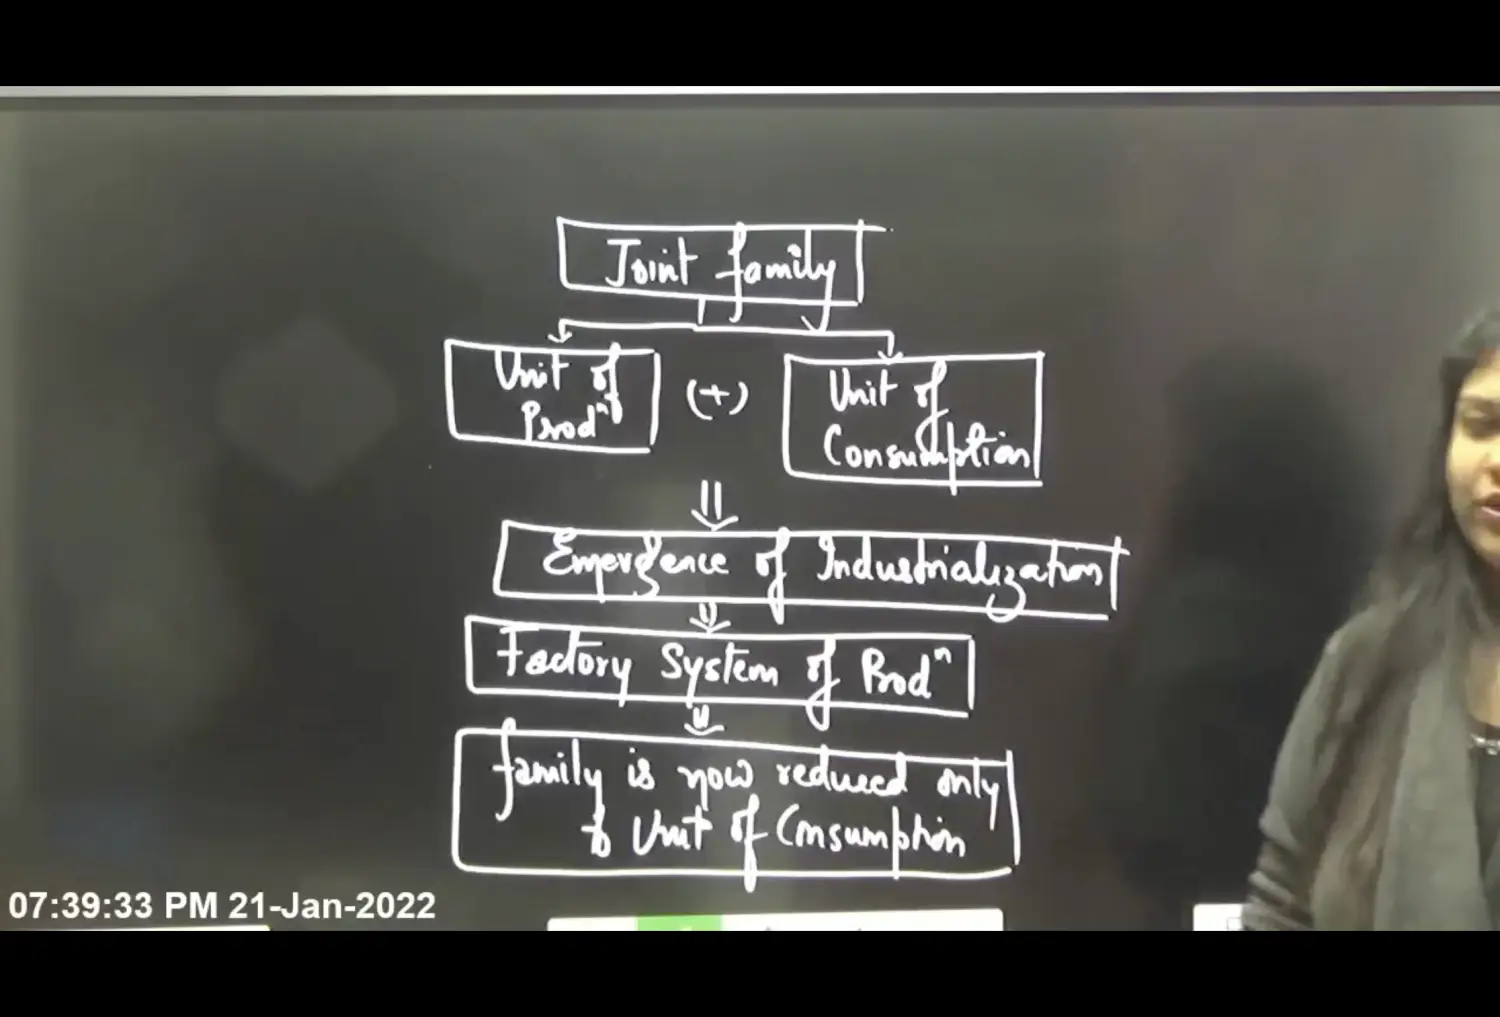 Joint family
Unit of
Prodⁿ
(+)
Unit of
Consumption
Emergence of Industrialization
Factory System of Prodⁿ
family is now reduced only
to Unit of Consumption
07:39:33 PM 21-Jan-2022